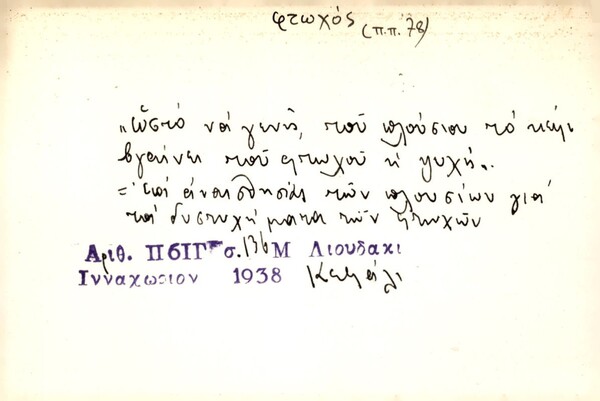 φτωχός (π.π. 78)
„ὥστό νά γενῆ τοῦ πλούσιου τό κέφι
βγαίνει τοῦ φτωχοῦ ἡ ψυχή„.
= ἐπί ἀναισθησίας τῶν πλουσίων γιά
τά δυστυχήματα τῶν φτωχῶν
Αριθ. ΠϬΙΓ σ. 136 Μ Λιουδακι
Ινναχωριον 1938 Κεφάλι